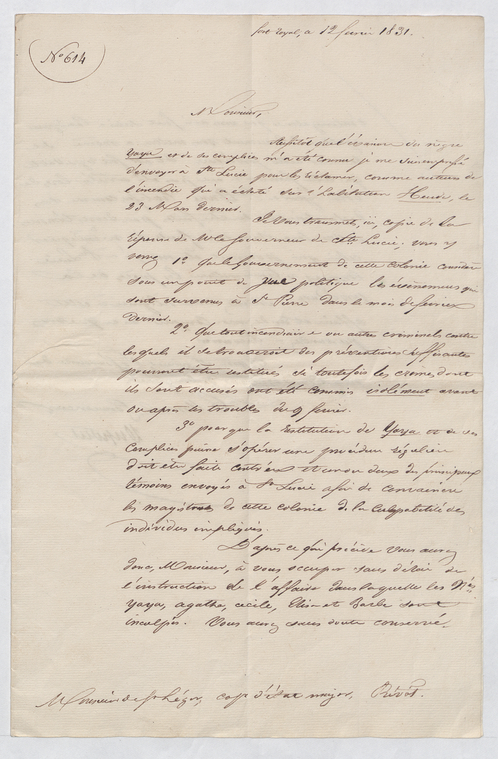 N° 614
Fort Royal, a 12 1831.
Monsieur,
Aussitôt que l'évasion du nègre
Yaya et de ses complices m'a été connue je me suis empressé
d'envoyer a Ste Lucie pour les réclamer, comme auteurs de
l'incendie qui a éclaté sur l'habitation le
23 Mars dernier.
Je vous transmets, ici, copie de la
réponse de Mr le Gouverneur de Ste Lucie. vous y
verrez 1° que le Gouvernement de cette colonie considère
sous un point de vue politique les évènemens qui
sont survenus à St Pierre dans le mois de février
dernier.
2° que tout incendiaire ou autre criminels contre
lesquels il se trouverait des préventions suffisantes
pourront être restitués si toutefois les crimes dont
ils sont accusés ont été commis isolément avant
ou après les troubles de 9 février.
3° pour que la restitution de Yaya et de ses
complices puisse s'opérer une procédure régulière
doit être faite contre eux et un ou deux des principaux
témoins envoyés à Ste Lucie afin de convaincre
les magistrats de cette colonie de la culpabilité des
individus impliqués.
D'après ce qui précède vous aurez
donc, Monsieur, à vous occuper sans délai de
l'instruction de l'affaire dans laquelle les
Yaya, agathe, cécile, et Barbe sont
inculpés. Vous aurez sans doute conservé
Monsieur de St Léger, cape d'état major, Prévôt.